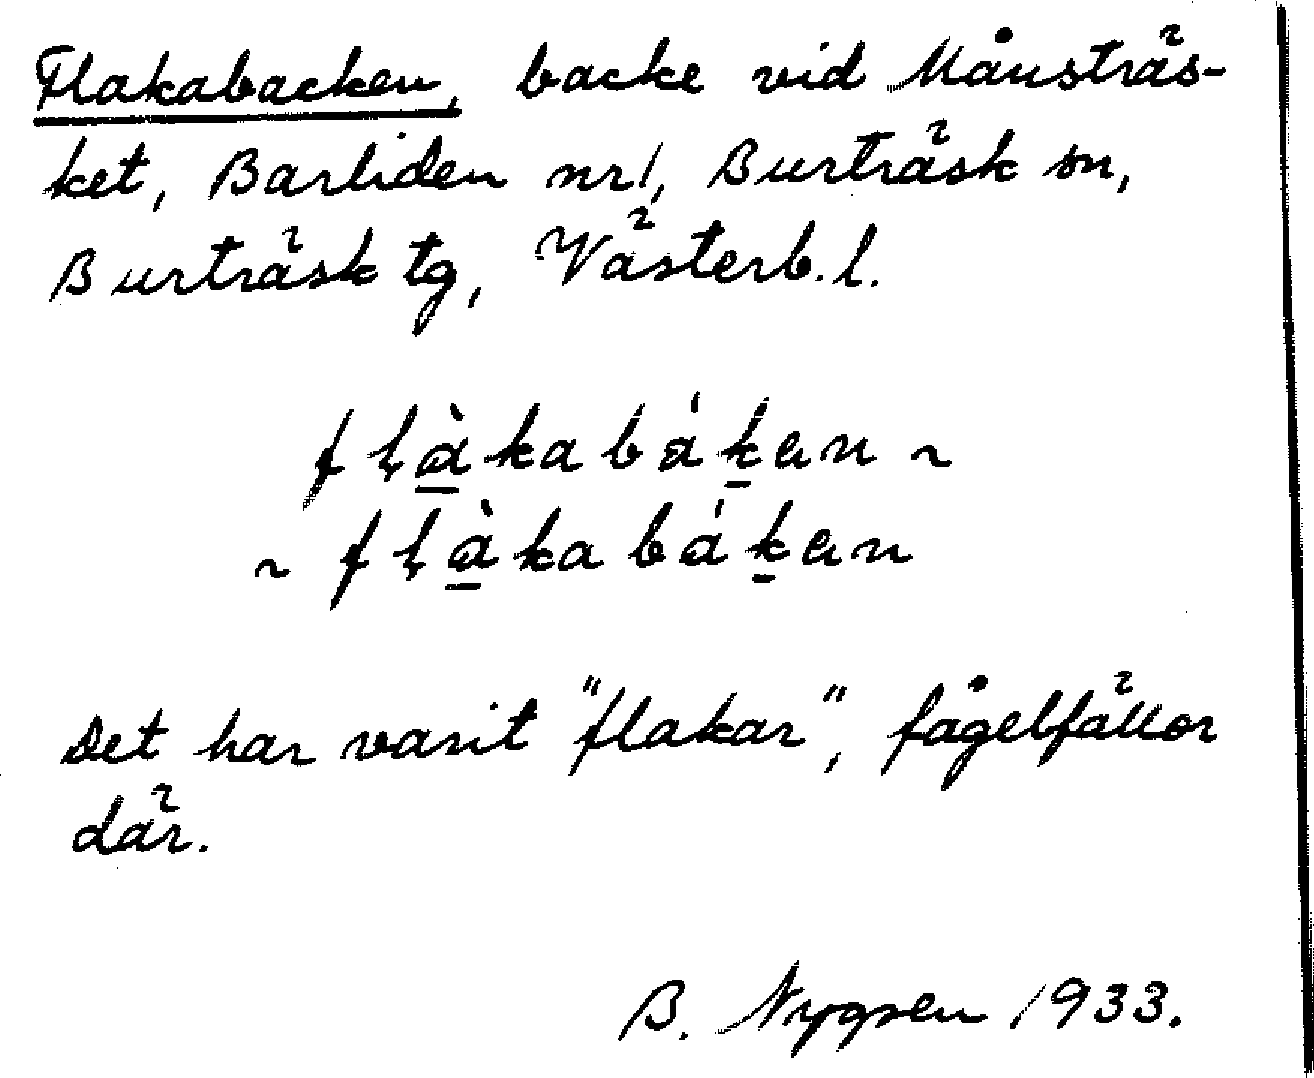 Flakabacken, backe vid Månsträs-
ket, Barliden nr 1, Burträsk sn,
Burträsk tg, Västerb. l.
fl̥à̱kabáḵen ~
~ fl̥à̱kabáḵen
Det har varit "flakar", fågelfällor
där.
B. Nygren 1933.